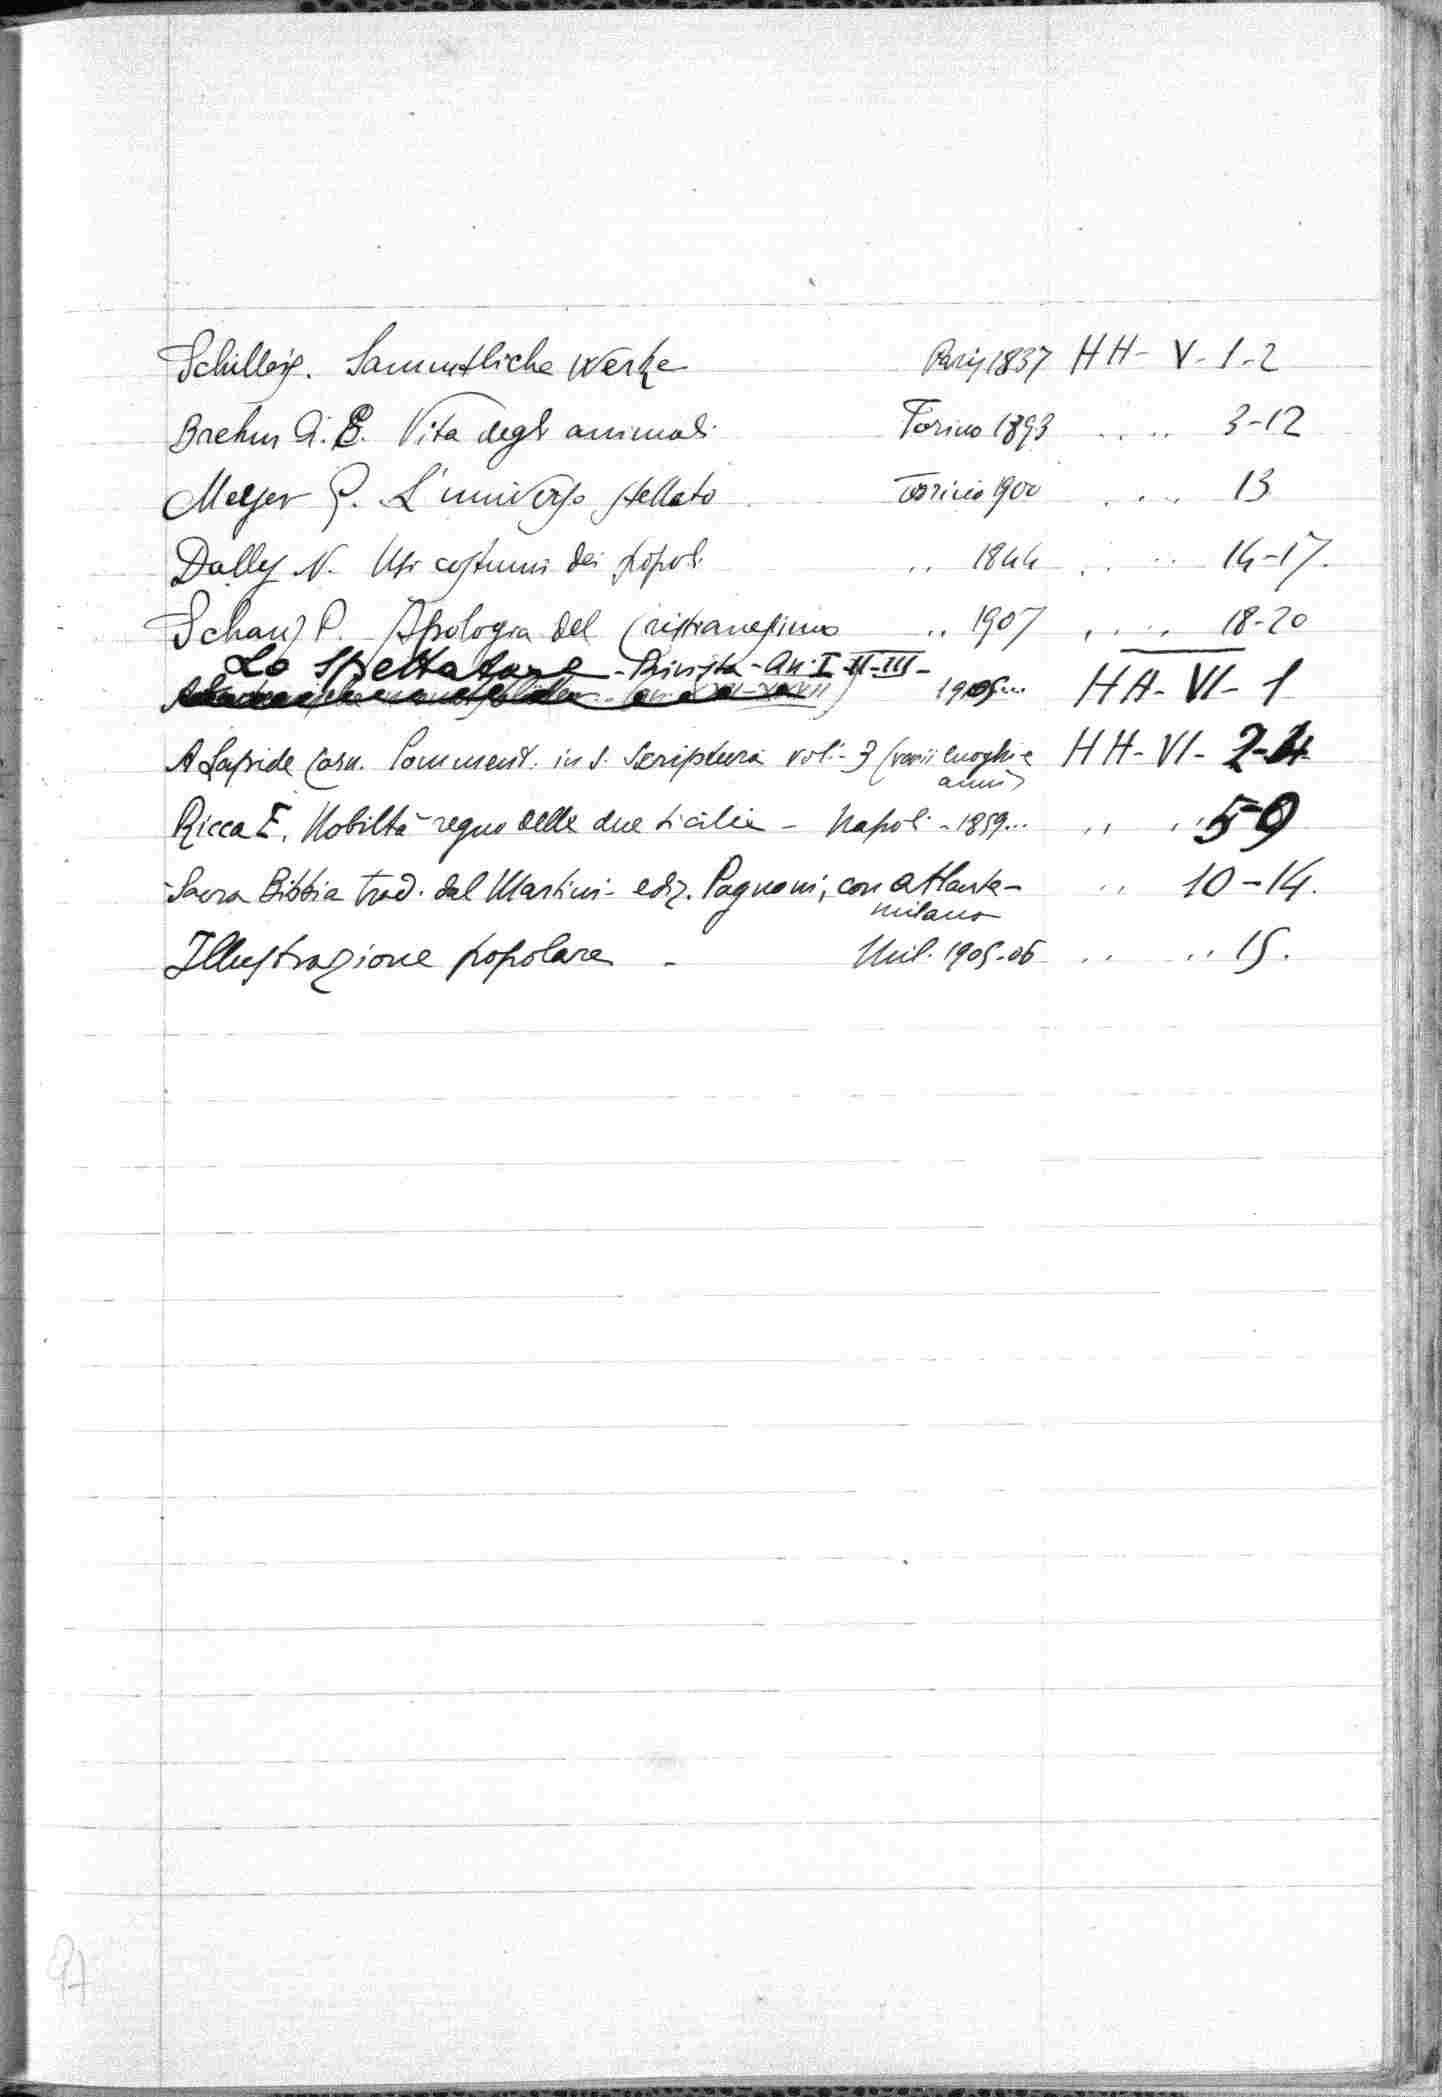 Schiller's. Sammtliche Werke Paris 1837 HH- V- 1-2
Brehm A. E. Vita degli animali Torino 1893 .. .. 3-12
Meyer G. L'universo stellato Torino 1900 .. .. 13
Dally N. Usi costumi dei popoli .. 1844 .. .. 14-17.
Schanz P. Apologia del Cristianesimo .. 1907 .. .. 18-20
Lo Spettatore - Rivista - An. I-II-III-
1905... HH- VI- 1
A Lapide Corn. Comment. in S. Scriptura vol. 3 (varii luoghi e HH- VI- 2-4
anni)
Ricca E. Nobiltà regno delle due Sicilie - Napoli - 1859... .. .. 5-9
Sacra Bibbia trad. dal Martini - ediz. Pagnoni, con atlante - .. 10-14.
Milano
Illustrazione popolare - Mil. 1905-06 .. .. 15.